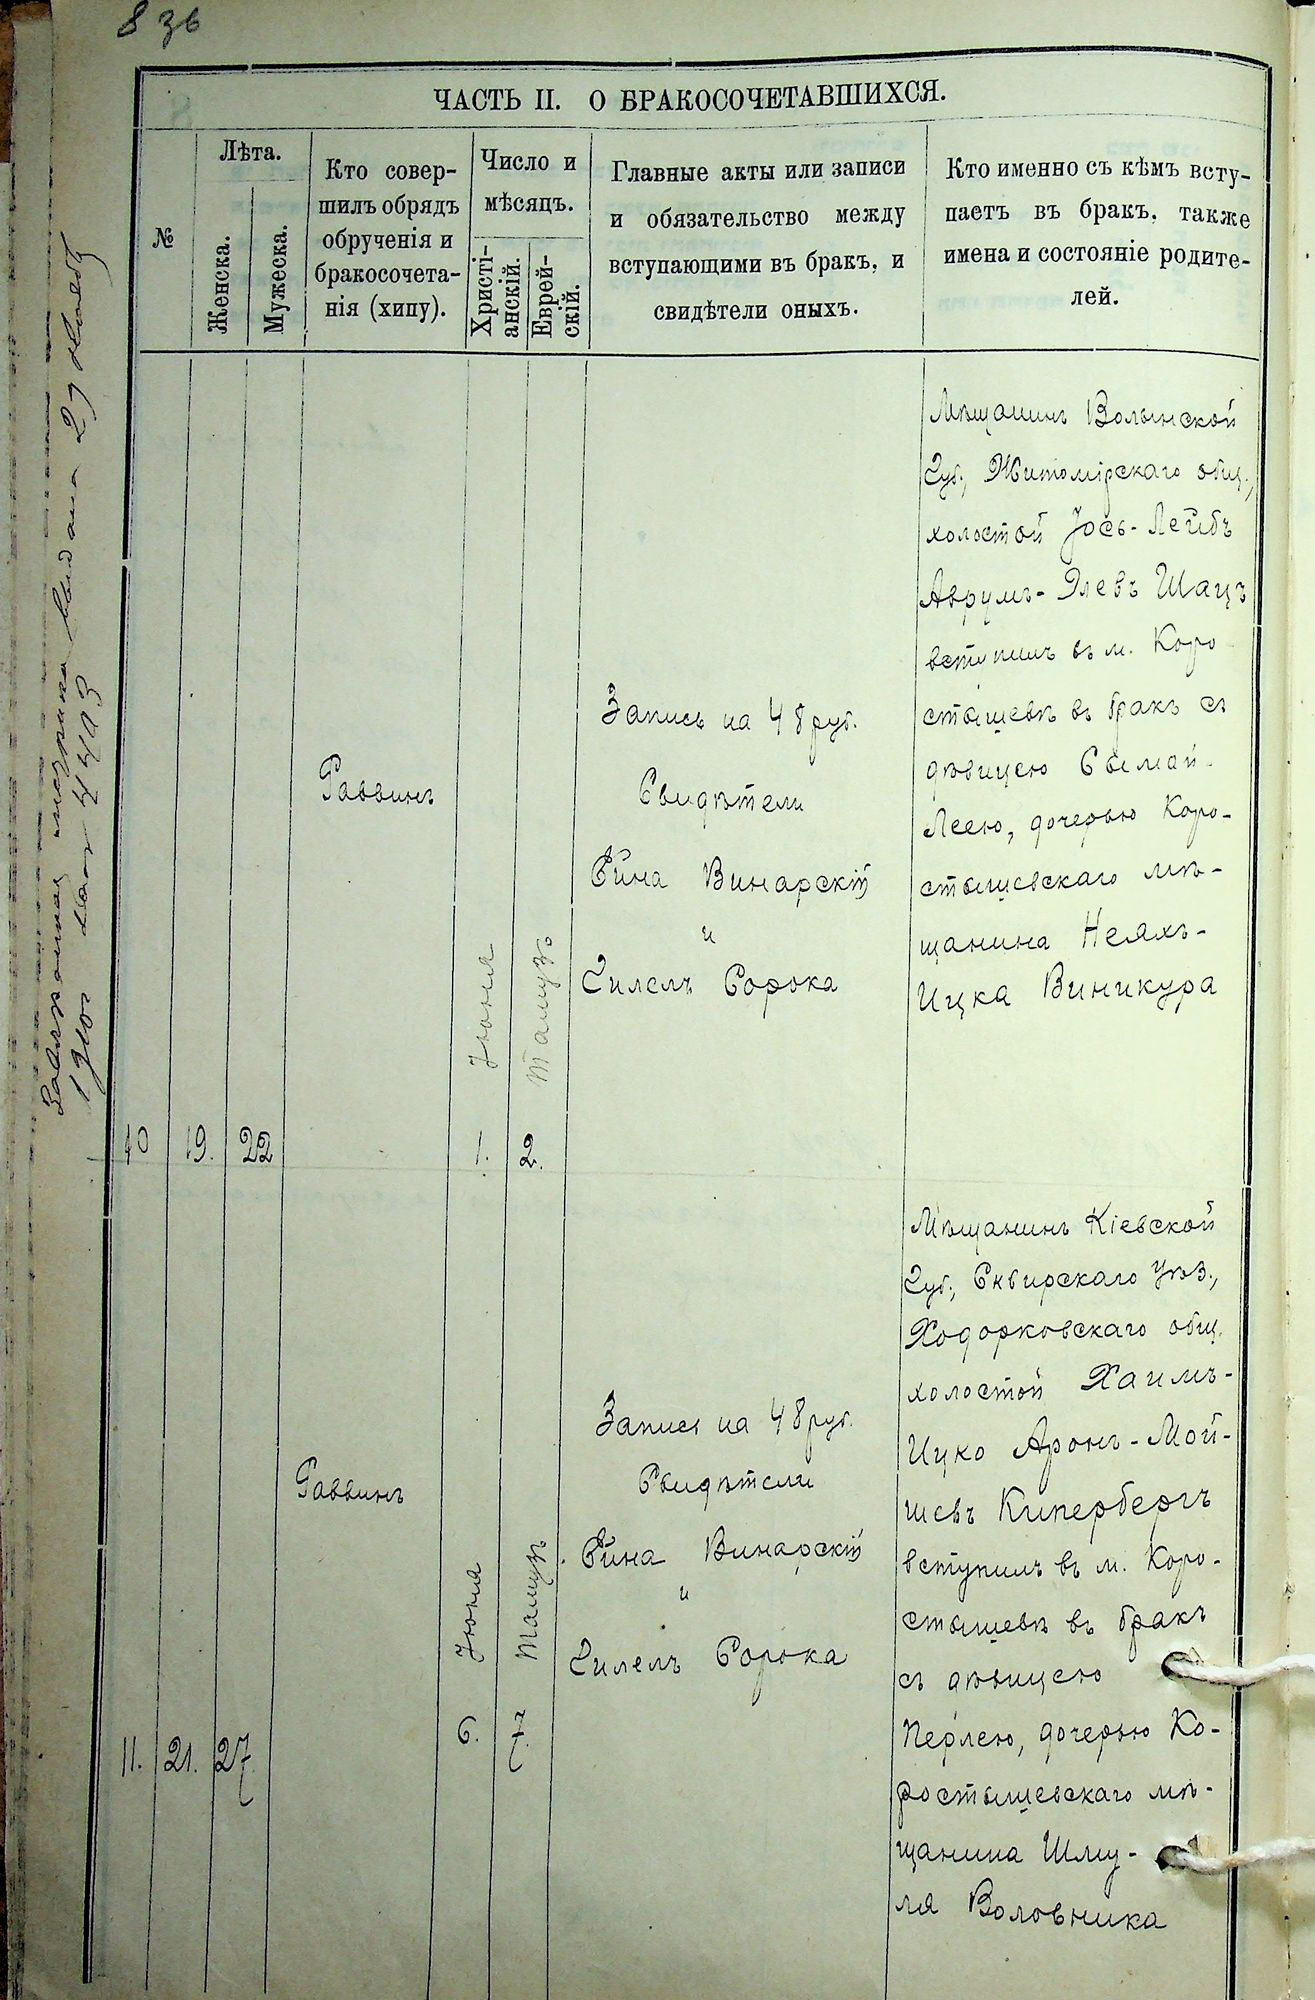 8 зв
ЧАСТЬ II. О БРАКОСОЧЕТАВШИХСЯ.
№
Лѣта.
Женска.
Мужеска.
Кто совер-
шилъ обрядъ
обрученія и
бракосочета-
нія (хипу).
Число и
мѣсяцъ.
Христі-
анскій.
Еврей-
скій.
Главные акты или записи
и обязательство между
вступающими въ бракъ, и
свидѣтели оныхъ.
Кто именно съ кѣмъ всту-
паетъ въ бракъ, также
имена и состояніе родите-
лей.
10
19.
22
Раввинъ
1.
Іюня
2.
Тамузъ
Запись на 48 руб.
Свидѣтели
Сина Винарскій
и
Гилелъ Сорока
Мѣщанинъ Волынской
Губ., Житомірскаго общ.,
холостой Іось-Лейбъ
Аврумъ-Элевъ Шацъ
вступилъ въ м. Коро
стышевѣ въ бракъ съ
дѣвицею
Леею, дочерью Коро-
стышевскаго мѣ-
щанина
Ицка Виникура
11.
21.
27
Раввинъ
6.
Іюня
7.
Тамузъ
Запись на 48 руб.
Свидѣтели
Сина Винарскій
и
Гилелъ Сорока
Мѣщанинъ Кіевской
Губ., Сквирскаго уѣз.,
Ходорковскаго общ.
холостой Хаимъ-
Ицко Аронъ-Мой-
шевъ Кипербергъ
вступилъ въ м. Коро-
стышевѣ въ бракъ
съ дѣвицею
Перлею, дочерью Ко-
ростышевскаго мѣ-
щанина Шму-
ля Воловника
выдана 29